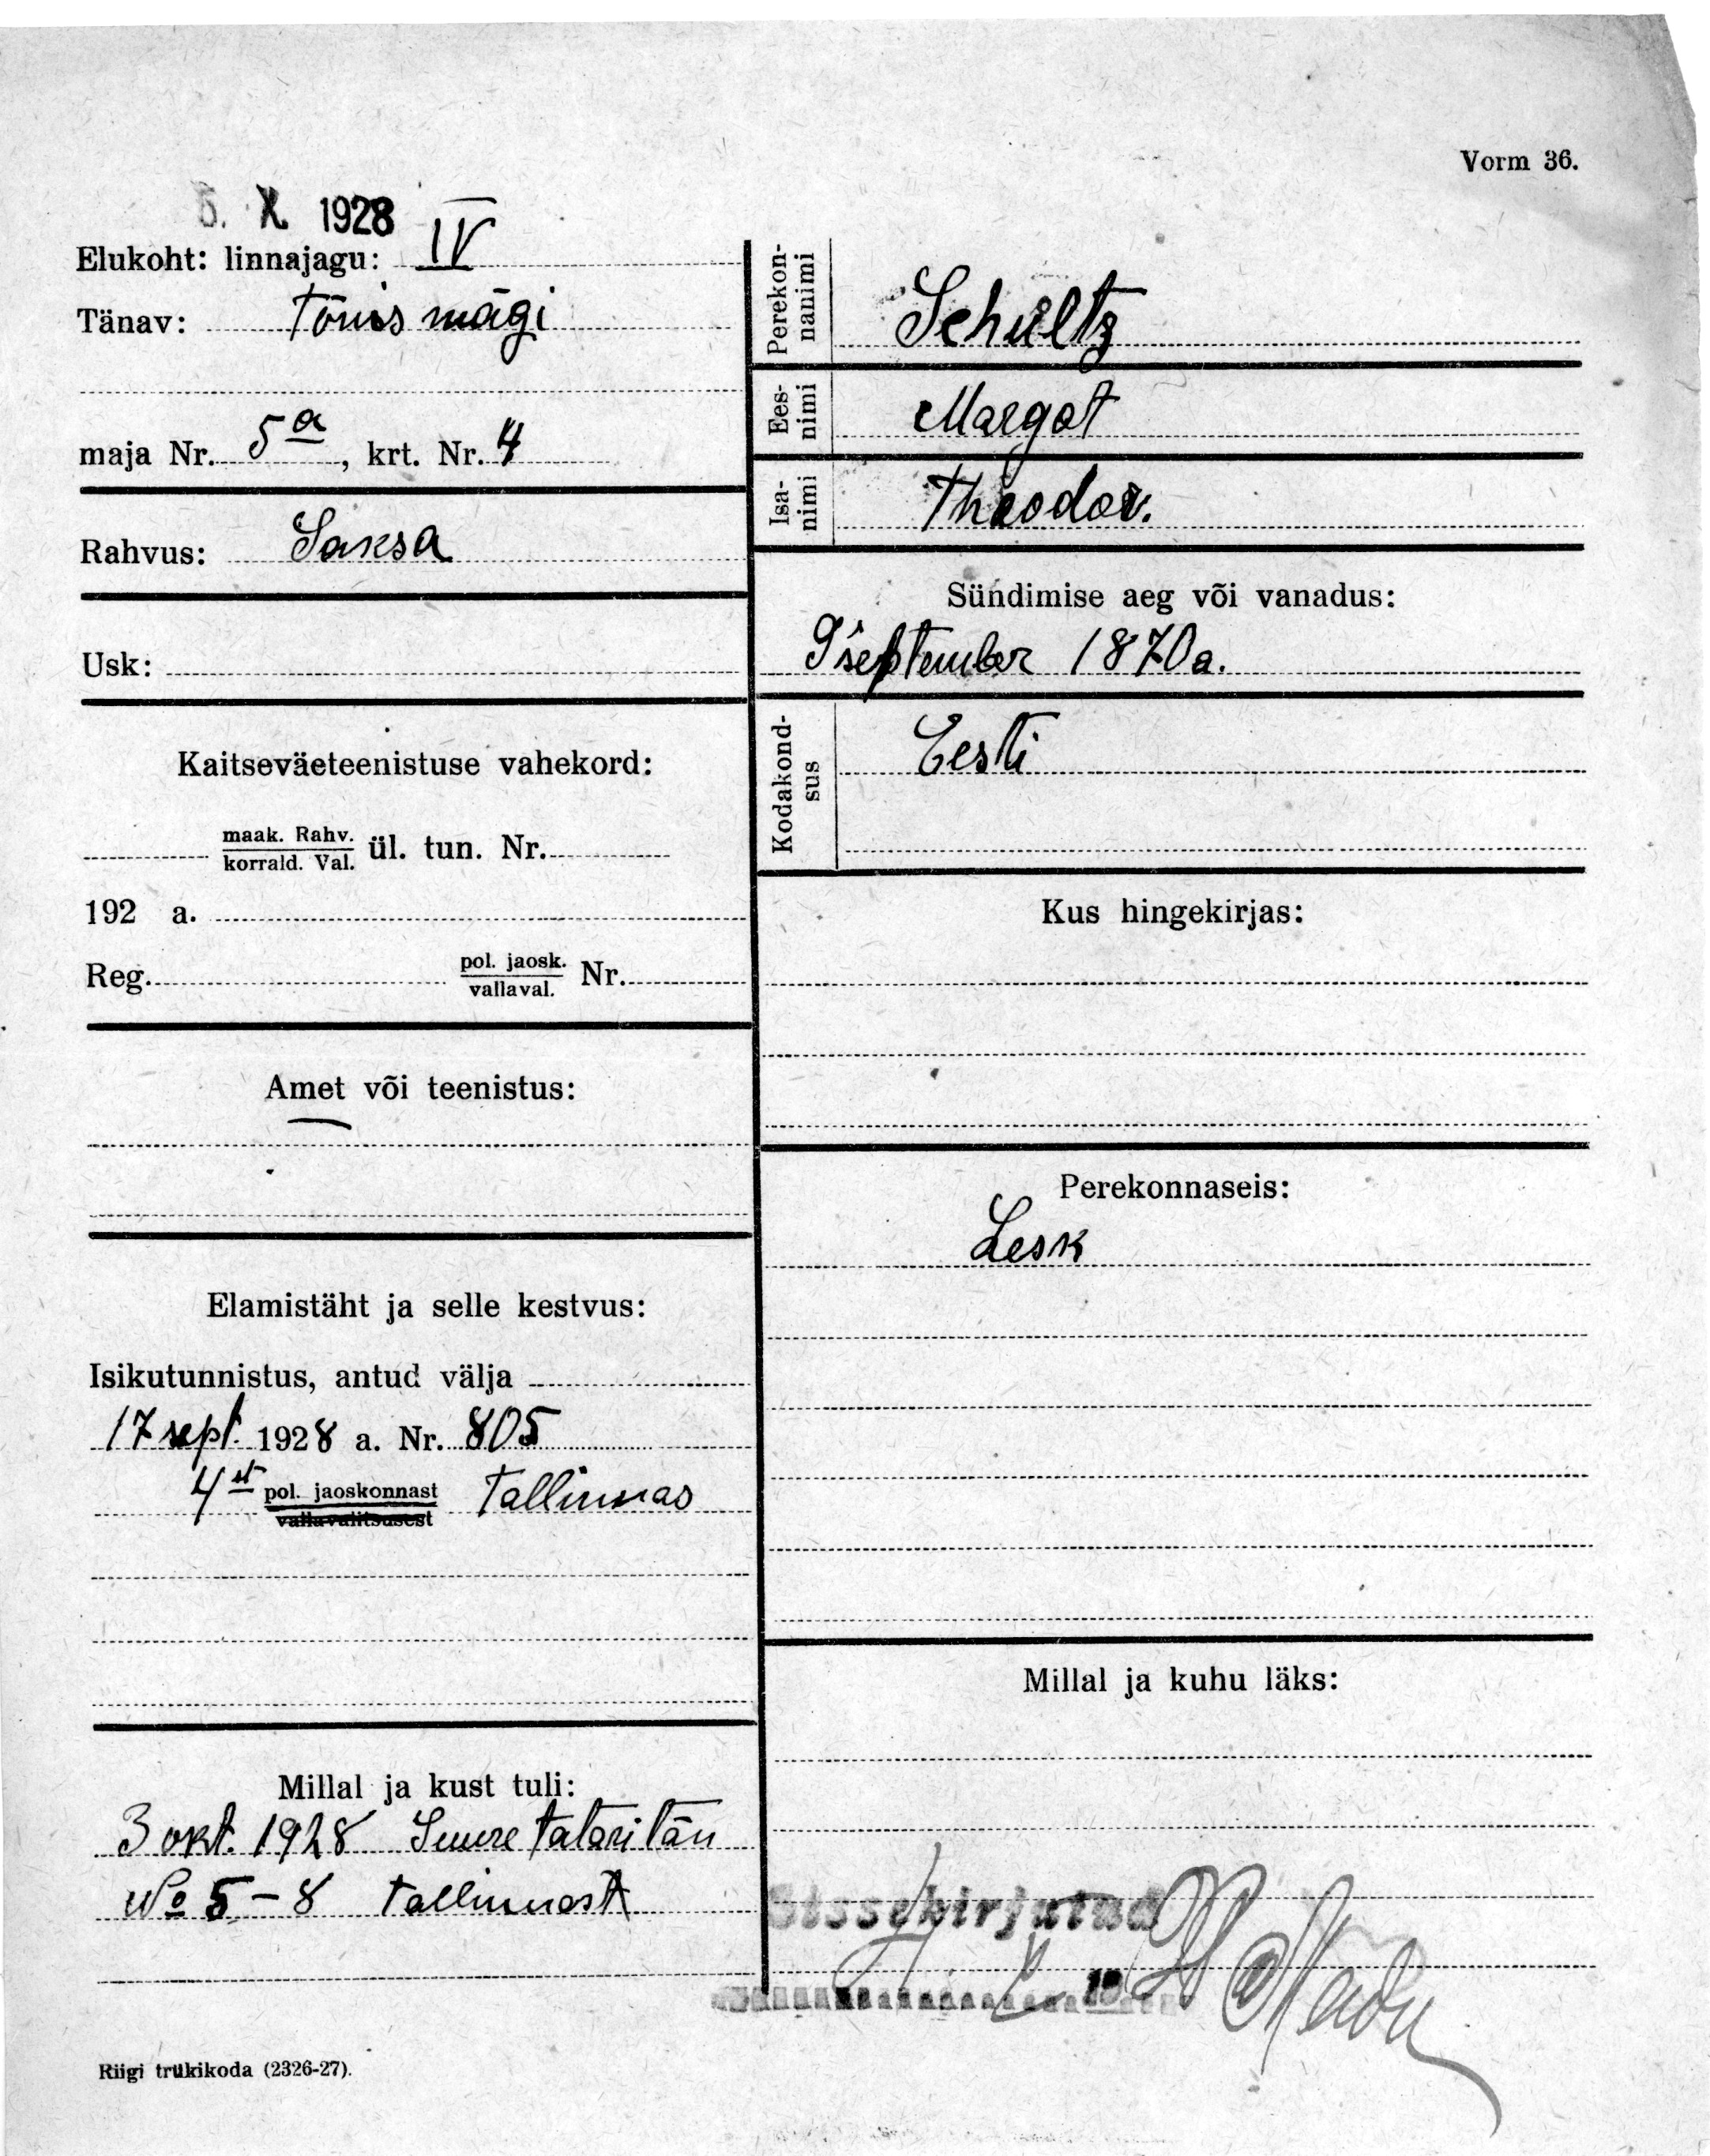 Vorm 36.
5. X. 1928
Elukoht: linnajagu: IV
Tänav: Tõnis mägi
maja Nr. 5a, krt. Nr. 4
Rahvus: Saksa
Usk:
Kaitseväeteenistuse vahekord:
maak. Rahv.
korrald. Val. ül. tun. Nr.
192 a.
Reg. pol. jaosk. Nr.
vallaval.
Amet või teenistus:
—
Elamistäht ja selle kestvus:
Isikutunnistus, antud välja
17 sept. 1928 a. Nr. 805
4st pol. jaoskonnast Tallinnas
vallavalitsusest
Millal ja kust tuli:
3 okt. 1928 Suure tatari tän
No 5-8 Tallinnast
Riigi trükikoda (2326-27).
Perekon-
nanimi
Schultz
Ees-
nimi
Margot
Isa-
nimi
Theodor.
Sündimise aeg või vanadus:
9 september 1870 a.
Kodakond-
sus
Eesti
Kus hingekirjas:
Perekonnaseis:
Lesk
Millal ja kuhu läks:
Sissekirjutud
19